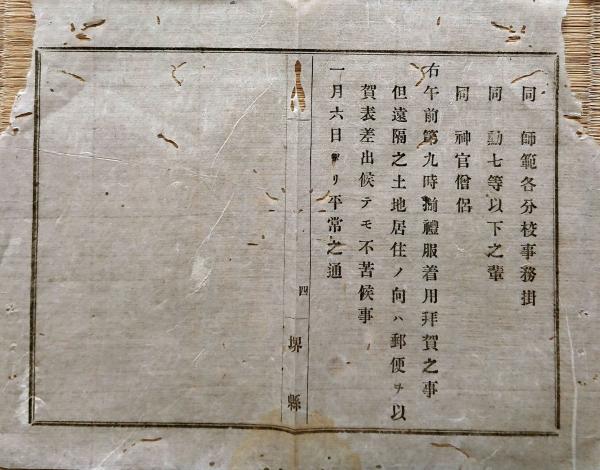 同 師範各分校事務掛
同 勳七等以下之輩
同 神官僧侶
右午前第九時揃禮服着用拜賀之事
但遠隔之土地居住ノ向ハ郵便ヲ以
賀表差出候テモ不苦候事
一月六日ヨリ平常之通
四
堺縣